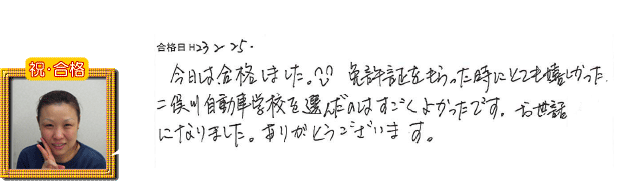 合格日 H23 2 25.
祝・合格
今日は合格しました。 免許証をもらった時にとても嬉しかった.
二俣川自動車学校を選んだのはすごくよかったです。お世話
になりました。ありがとうございます。